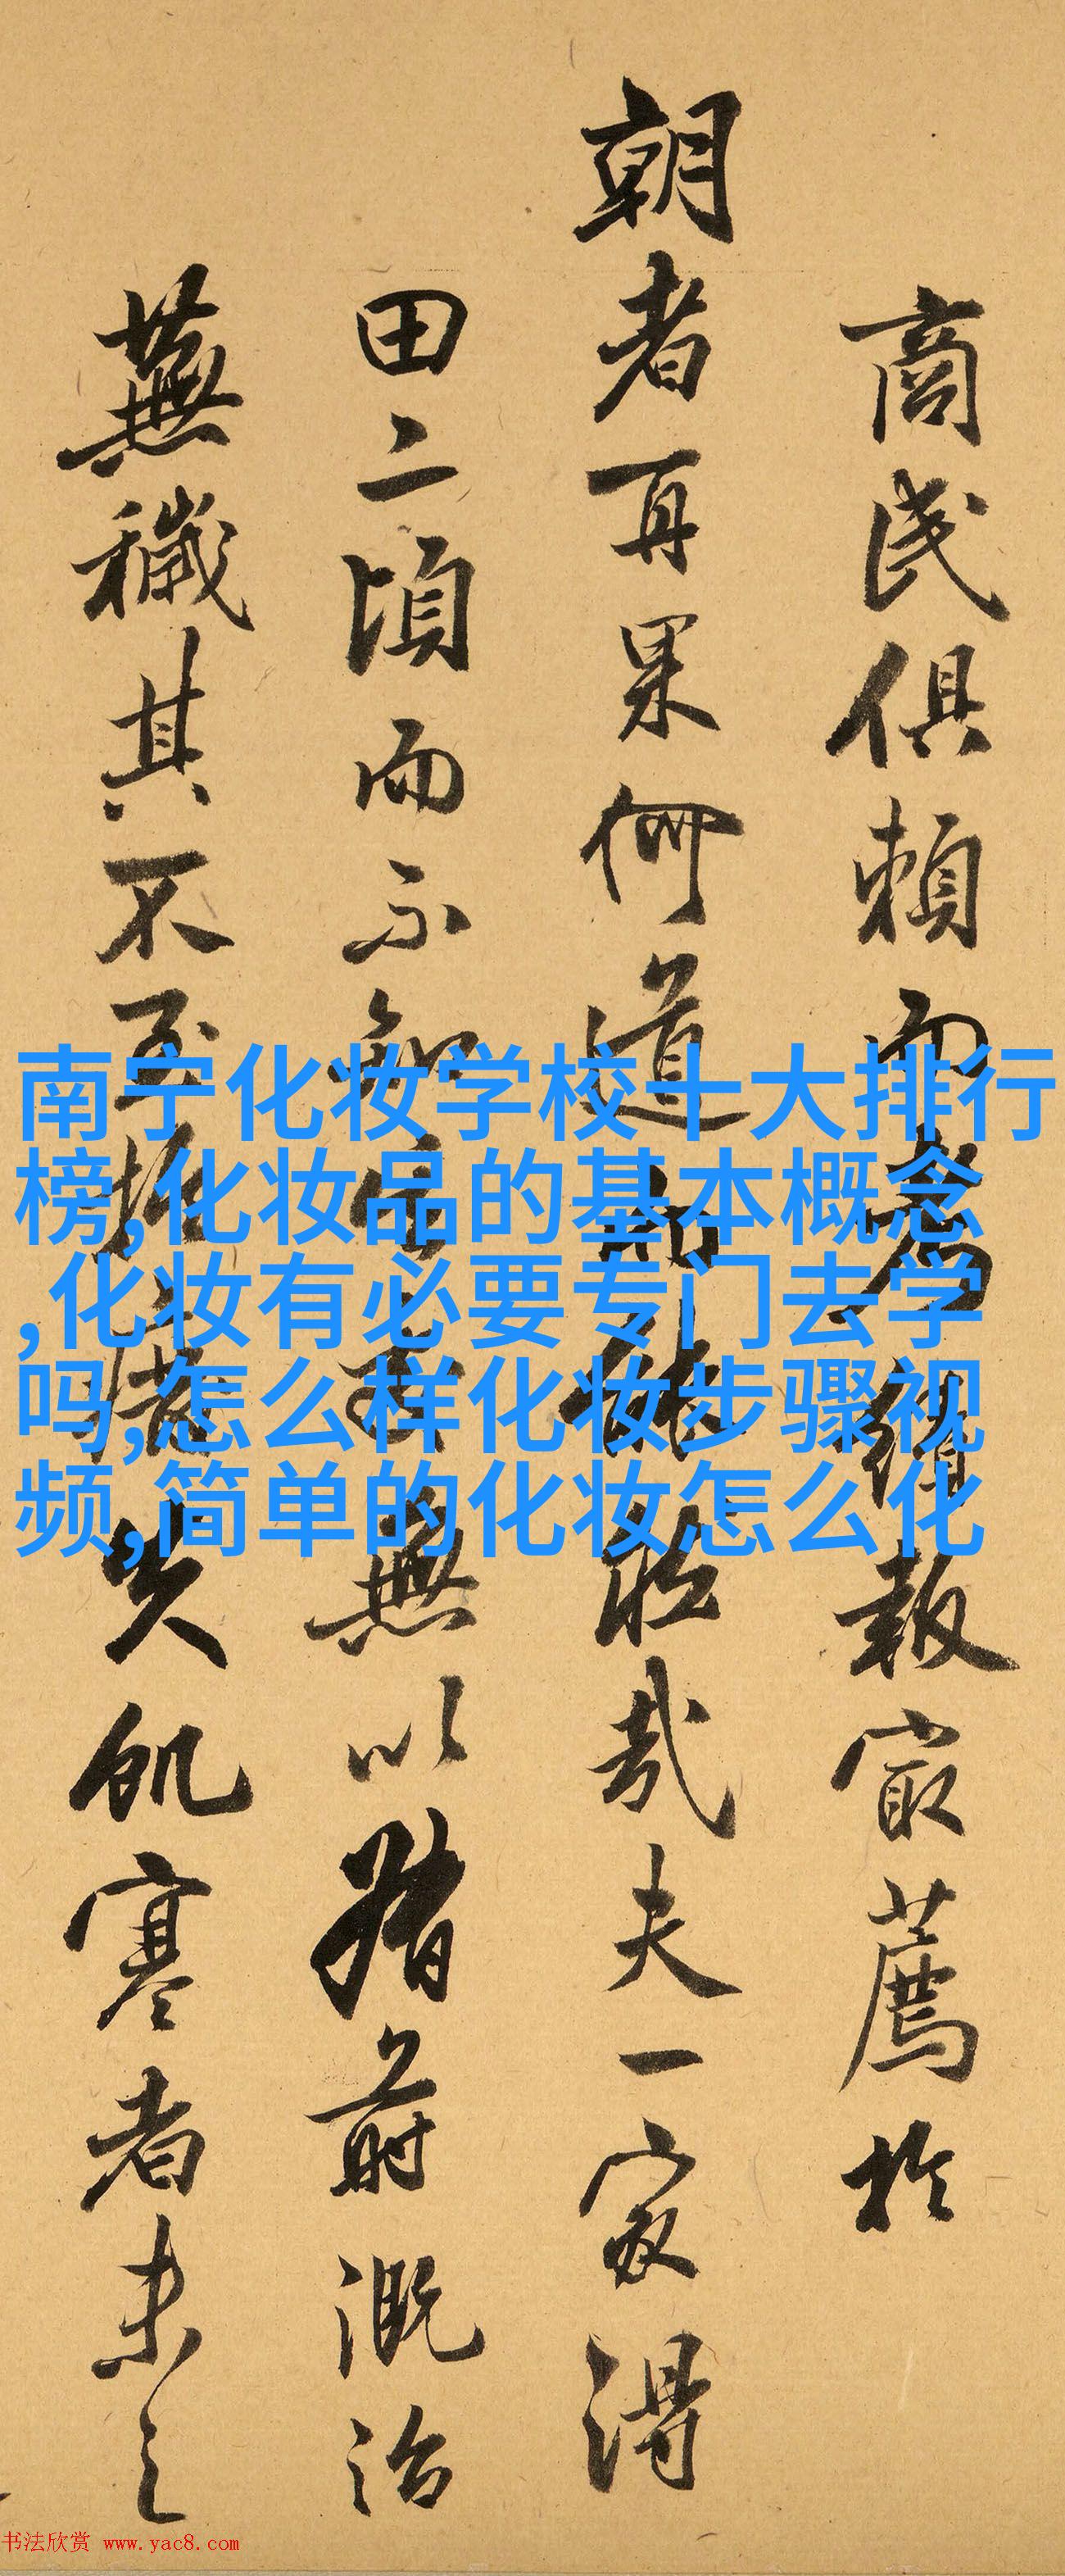 商民俱頼而為績報最薦於
朝者再果何道而能臥哉夫一家得
田二頃而不知宅無以猪前溉治
蕪穢其不至於荒失飢寒者未之
南宁化妆学校十大排行
榜,化妆品的基本概念
,化妆有必要专门去学
吗,怎么样化妆步骤视
频,简单的化妆怎么化
书法欣赏 www.yac8.com